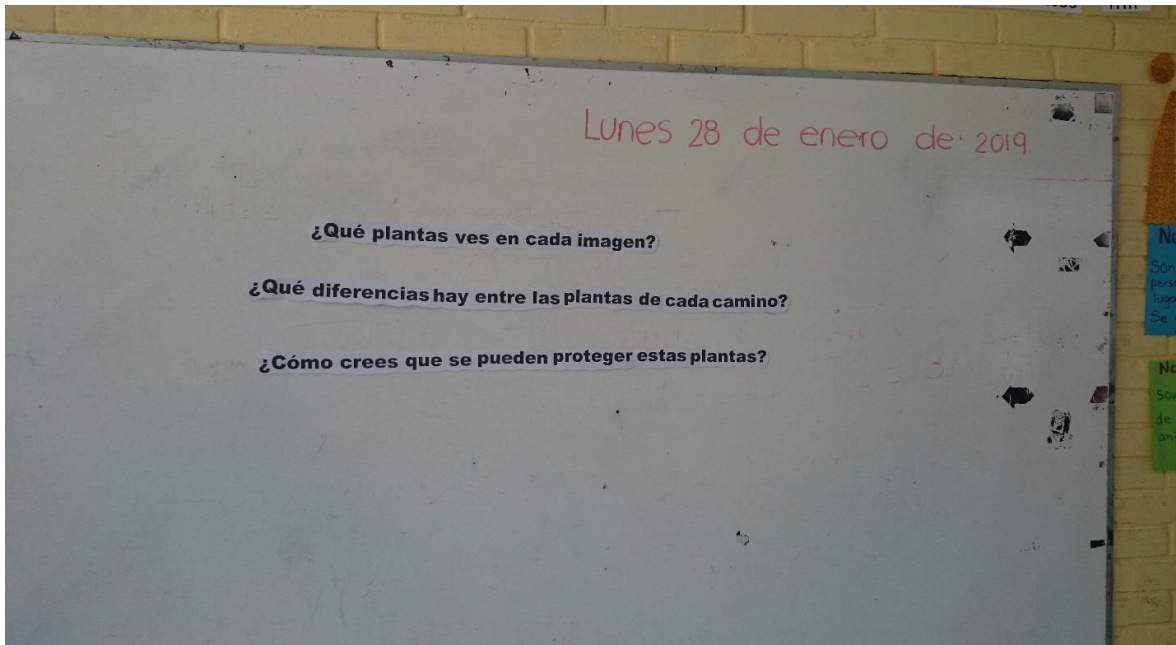 Lunes 28 de enero de 2019
¿Qué plantas ves en cada imagen?
¿Qué diferencias hay entre las plantas de cada camino?
¿Cómo crees que se pueden proteger estas plantas?
Son
Se
de